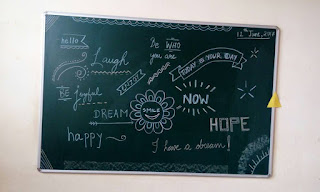 hello!
Laugh
Be WHO
you are
12th June, 2018
TODAY is YOUR DAY
BE joyful
DREAM
SMILE
NOW
HOPE
happy
I have a dream!